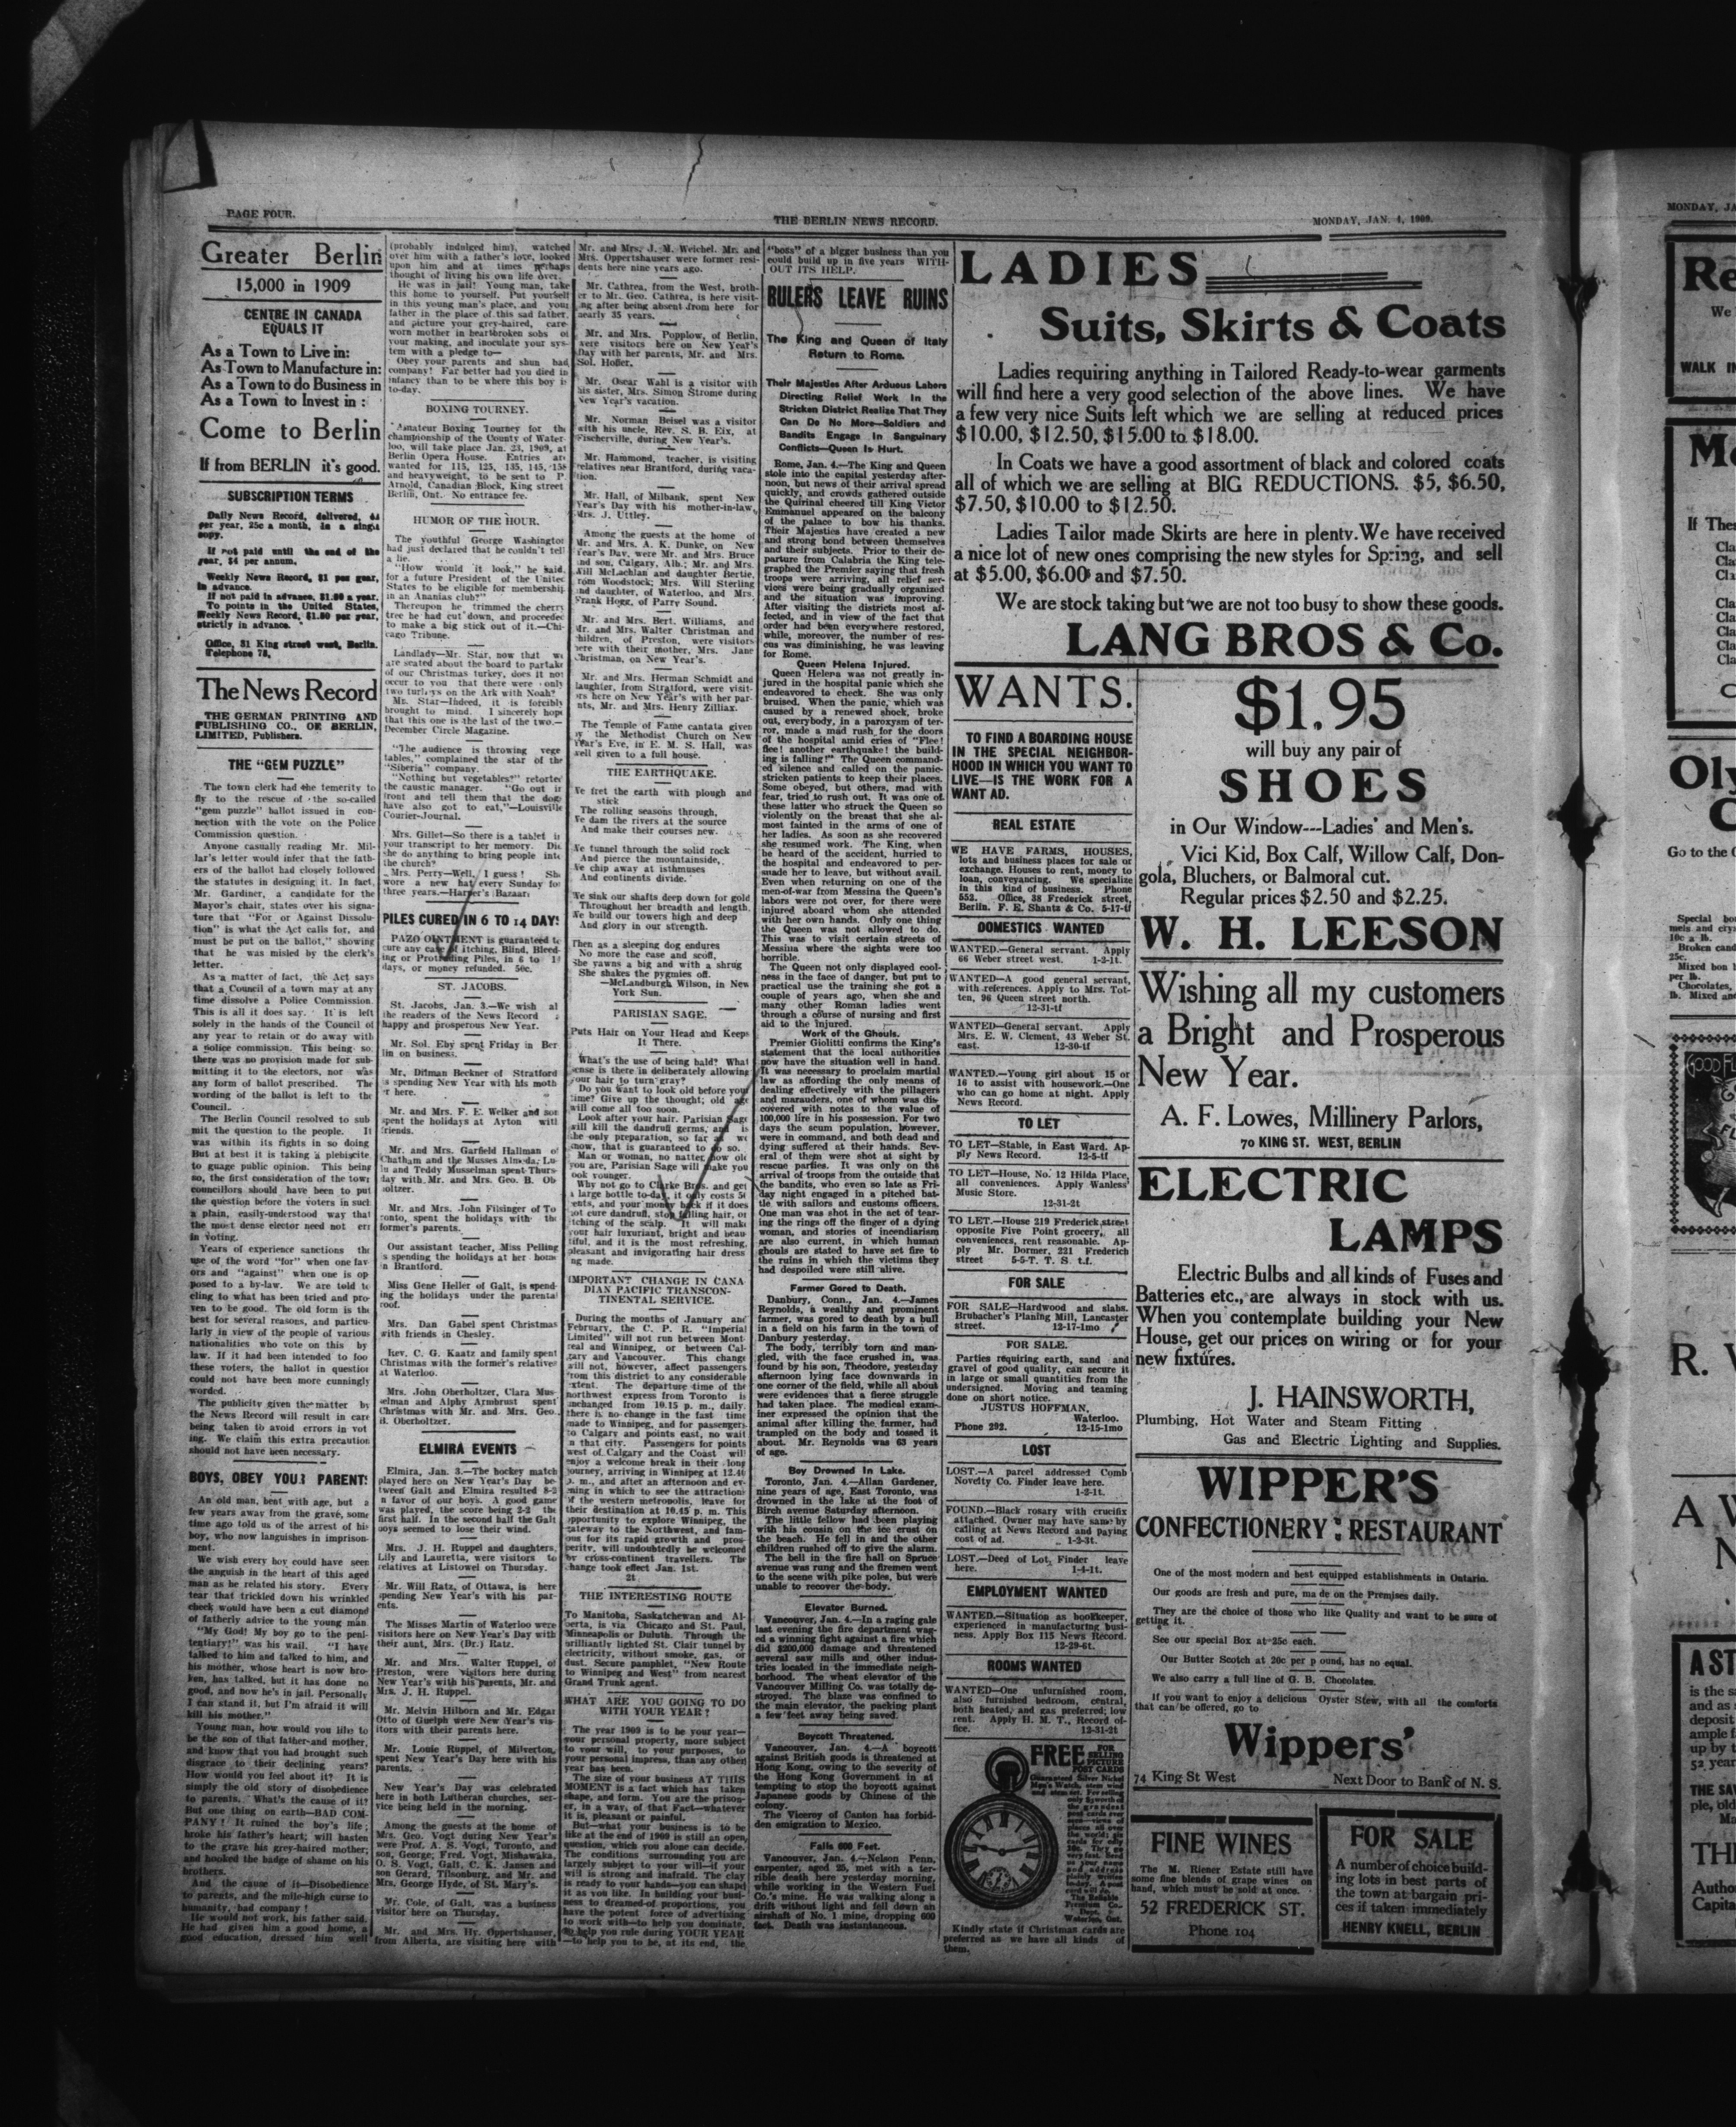 PAGE FOUR.
THE BERLIN NEWS RECORD.
MONDAY, JAN. 4, 1909.
Greater Berlin
15,000 in 1909
CENTRE IN CANADA
EQUALS IT
As a Town to Live in:
As a Town to Manufacture in:
As a Town to do Business in
As a Town to Invest in :
Come to Berlin
If from BERLIN it's good.
SUBSCRIPTION TERMS
Daily News Record, delivered,
per year, 25c a month,
copy.
If not paid until the end of the
year, $4 per annum.
Weekly News Record, $1 per year,
in advance.
If not paid in advance, $1.50 a year.
To points in the United States,
Weekly News Record, $1.50 per year,
strictly in advance.
Office, 31 King street west, Berlin.
Telephone 78.
The News Record
THE GERMAN PRINTING AND
PUBLISHING CO., OF BERLIN,
LIMITED, Publishers.
THE "GEM PUZZLE"
The town clerk had the temerity to
fly to the rescue of the so-called
"gem puzzle" ballot issued in con-
nection with the vote on the Police
Commission question.
Anyone casually reading Mr. Mil-
lar's letter would infer that the fath-
ers of the ballot had closely followed
the statutes in designing it. In fact,
Mr. Gardiner, a candidate for the
Mayor's chair, states over his signa-
ture that "For or Against Dissolu-
tion" is what the Act calls for, and
must be put on the ballot," showing
that he was misled by the clerk's
letter.
As a matter of fact, the Act says
that a Council of a town may at any
time dissolve a Police Commission.
This is all it does say. It is left
solely in the hands of the Council of
any year to retain or do away with
a police commission. This being so
there was no provision made for sub-
mitting it to the electors, nor was
any form of ballot prescribed. The
wording of the ballot is left to the
Council.
The Berlin Council resolved to sub
mit the question to the people. It
was within its rights in so doing
But at best it is taking a plebiscite
to guage public opinion. This being
so, the first consideration of the town
councillors should have been to put
the question before the voters in such
a plain, easily-understood way that
the most dense elector need not err
in voting.
Years of experience sanctions the
use of the word "for" when one fav
ors and "against" when one is op
posed to a by-law. We are told to
cling to what has been tried and pro-
ven to be good. The old form is the
best for several reasons, and particu-
larly in view of the people of various
nationalities who vote on this by
law. If it had been intended to foo
these voters, the ballot in question
could not have been more cunningly
worded.
The publicity given the matter by
the News Record will result in care
being taken to avoid errors in vot
ing. We claim this extra precaution
should not have been necessary.
BOYS, OBEY YOUR PARENT:
An old man, bent with age, but a
few years away from the grave, some
time ago told us of the arrest of his
boy, who now languishes in imprison-
ment.
We wish every boy could have seen
the anguish in the heart of this aged
man as he related his story. Every
tear that trickled down his wrinkled
cheek would have been a cut diamond
of fatherly advice to the young man
"My God! My boy go to the peni-
tentiary!" was his wail. "I have
talked to him and talked to him, and
his mother, whose heart is now bro-
ken, has talked, but it has done no
good, and now he's in jail. Personally
I can stand it, but I'm afraid it will
kill his mother."
Young man, how would you like to
be the son of that father and mother,
and know that you had brought such
disgrace to their declining years?
How would you feel about it? It is
simply the old story of disobedience
to parents. What's the cause of it?
But one thing on earth—BAD COM-
PANY! It ruined the boy's life;
broke his father's heart; will hasten
to the grave his grey-haired mother;
and hooked the badge of shame on his
brothers.
And the cause of it—Disobedience
to parents, and the mile-high curse to
humanity, bad company!
He would not work, his father said.
He had given him a good home, a
good education, dressed him well
(probably indulged him), watched
over him with a father's love, looked
upon him and at times perhaps
thought of living his own life over.
He was in jail! Young man, take
this home to yourself. Put yourself
in this young man's place, and your
father in the place of this sad father,
and picture your grey-haired, care-
worn mother in heartbroken sobs of
your making, and inoculate your sys-
tem with a pledge to—
Obey your parents and shun bad
company! Far better had you died in
infancy than to be where this boy is
to-day.
BOXING TOURNEY.
Amateur Boxing Tourney for the
championship of the County of Water-
loo, will take place Jan. 23, 1909, at
Berlin Opera House. Entries are
wanted for 115, 125, 135, 145, 158
and heavyweight, to be sent to P.
Arnold, Canadian Block, King street
Berlin, Ont. No entrance fee.
HUMOR OF THE HOUR.
The youthful George Washington
had just declared that he couldn't tell
a lie.
"How would it look," he said,
for a future President of the United
States to be eligible for membership
in an Ananias club?"
Thereupon he trimmed the cherry
tree he had cut down, and proceeded
to make a big stick out of it.—Chi-
cago Tribune.
Landlady—Mr. Star, now that we
are seated about the board to partake
of our Christmas turkey, does it not
occur to you that there were only
two turkeys on the Ark with Noah?
Mr. Star—Indeed, it is forcibly
brought to mind. I sincerely hope
that this one is the last of the two.—
December Circle Magazine.
"The audience is throwing vege
tables," complained the star of the
"Siberia" company.
"Nothing but vegetables?" retorted
the caustic manager. "Go out in
front and tell them that the dogs
have also got to eat,"—Louisville
Courier-Journal.
Mrs. Gillet—So there is a tablet in
your transcript to her memory. Did
she do anything to bring people into
the church?
Mrs. Perry—Well, I guess! She
wore a new hat every Sunday for
three years.—Harper's Bazaar.
PILES CURED IN 6 TO 14 DAYS
PAZO OINTMENT is guaranteed to
cure any case of Itching, Blind, Bleed-
ing or Protruding Piles, in 6 to 14
days, or money refunded. 50c.
ST. JACOBS.
St. Jacobs, Jan. 3.—We wish al
the readers of the News Record a
happy and prosperous New Year.
Mr. Sol. Eby spent Friday in Ber
lin on business.
Mr. Ditman Beckner of Stratford
is spending New Year with his moth
er here.
Mr. and Mrs. F. E. Welker and son
spent the holidays at Ayton with
friends.
Mr. and Mrs. Garfield Hallman of
Chatham and the Misses Almeda, Lu-
lu and Teddy Musselman spent Thurs-
day with Mr. and Mrs. Geo. B. Ob
holtzer.
Mr. and Mrs. John Filsinger of To
ronto, spent the holidays with the
former's parents.
Our assistant teacher, Miss Pelling
is spending the holidays at her home
in Brantford.
Miss Gene Heller of Galt, is spend-
ing the holidays under the parental
roof.
Mrs. Dan Gabel spent Christmas
with friends in Chesley.
Rev. C. G. Kaatz and family spent
Christmas with the former's relatives
at Waterloo.
Mrs. John Oberholtzer, Clara Mus-
selman and Alphy Armbrust spent
Christmas with Mr. and Mrs. Geo.
B. Oberholtzer.
ELMIRA EVENTS
Elmira, Jan. 3.—The hockey match
played here on New Year's Day be-
tween Galt and Elmira resulted 8-2
in favor of our boys. A good game
was played, the score being 2-2 the
first half. In the second half the Galt
boys seemed to lose their wind.
Mrs. J. H. Ruppel and daughters,
Lily and Lauretta, were visitors to
relatives at Listowel on Thursday.
Mr. Will Ratz, of Ottawa, is here
spending New Year's with his par-
ents.
The Misses Martin of Waterloo were
visitors here on New Year's Day with
their aunt, Mrs. (Dr.) Ratz.
Mr. and Mrs. Walter Ruppel, of
Preston, were visitors here during
New Year's with his parents, Mr. and
Mrs. J. H. Ruppel.
Mr. Melvin Hilborn and Mr. Edgar
Otto of Guelph were New Year's vis-
itors with their parents here.
Mr. Louie Ruppel, of Milverton,
spent New Year's Day here with his
parents.
New Year's Day was celebrated
here in both Lutheran churches, ser-
vice being held in the morning.
Among the guests at the home of
Mrs. Geo. Vogt during New Year's
were Prof. A. S. Vogt, Toronto, and
son, George; Fred. Vogt, Mishawaka,
O. S. Vogt, Galt, C. K. Jansen and
son Gerard, Tilsonburg, and Mr. and
Mrs. George Hyde, of St. Mary's.
Mr. Cole, of Galt, was a business
visitor here on Thursday.
Mr. and Mrs. Hy. Oppertshauser,
from Alberta, are visiting here with
Mr. and Mrs. J. M. Weichel. Mr. and
Mrs. Oppertshauser were former resi-
dents here nine years ago.
Mr. Cathrea, from the West, broth-
er to Mr. Geo. Cathrea, is here visit-
ing after being absent from here for
nearly 35 years.
Mr. and Mrs. Popplow, of Berlin,
were visitors here on New Year's
Day with her parents, Mr. and Mrs.
Sol. Hofler.
Mr. Oscar Wahl is a visitor with
his sister, Mrs. Simon Strome during
New Year's vacation.
Mr. Norman Beisel was a visitor
with his uncle, Rev. S. B. Eix, at
Fischerville, during New Year's.
Mr. Hammond, teacher, is visiting
relatives near Brantford, during vaca-
tion.
Mr. Hall, of Milbank, spent New
Year's Day with his mother-in-law,
Mrs. J. Uttley.
Among the guests at the home of
Mr. and Mrs. A. K. Dunke, on New
Year's Day, were Mr. and Mrs. Bruce
and son, Calgary, Alb.; Mr. and Mrs.
Will McLachlan and daughter Bertie,
from Woodstock; Mrs. Will Sterling
and daughter, of Waterloo, and Mrs.
Frank Hogg, of Parry Sound.
Mr. and Mrs. Bert. Williams, and
Mr. and Mrs. Walter Christman and
children, of Preston, were visitors
here with their mother, Mrs. Jane
Christman, on New Year's.
Mr. and Mrs. Herman Schmidt and
daughter, from Stratford, were visit-
ors here on New Year's with her par-
ents, Mr. and Mrs. Henry Zilliax.
The Temple of Fame cantata given
by the Methodist Church on New
Year's Eve, in E. M. S. Hall, was
well given to a full house.
THE EARTHQUAKE.
We fret the earth with plough and
stick
The rolling seasons through,
We dam the rivers at the source
And make their courses new.
We tunnel through the solid rock
And pierce the mountainside,
We chip away at isthmuses
And continents divide.
We sink our shafts deep down for gold
Throughout her breadth and length,
We build our towers high and deep
And glory in our strength.
Then as a sleeping dog endures
No more the case and scoff,
She yawns a big and with a shrug
She shakes the pygmies off.
—McLandburgh Wilson, in New
York Sun.
PARISIAN SAGE.
Puts Hair on Your Head and Keeps
It There.
What's the use of being bald? What
sense is there in deliberately allowing
your hair to turn gray?
Do you want to look old before your
time? Give up the thought; old age
will come all too soon.
Look after your hair. Parisian Sage
will kill the dandruff germs, and is
the only preparation, so far as we
know, that is guaranteed to do so.
Man or woman, no matter how old
you are, Parisian Sage will make you
look younger.
Why not go to Clarke Bros. and get
a large bottle to-day, it only costs 50
cents, and your money back if it does
not cure dandruff, stop falling hair, or
itching of the scalp. It will make
your hair luxuriant, bright and beau
tiful, and it is the most refreshing,
pleasant and invigorating hair dress
ing made.
IMPORTANT CHANGE IN CANA
DIAN PACIFIC TRANSCON-
TINENTAL SERVICE.
During the months of January and
February, the C. P. R. "Imperial
Limited" will not run between Mont-
real and Winnipeg, or between Cal-
gary and Vancouver. This change
will not, however, affect passengers
from this district to any considerable
extent. The departure time of the
northwest express from Toronto is
unchanged from 10.15 p. m., daily.
there is no change in the fast time
made to Winnipeg, and for passengers
to Calgary and points east, no wait
in that city. Passengers for points
west of Calgary and the Coast will
enjoy a welcome break in their long
journey, arriving in Winnipeg at 12.40
p. m., and after an afternoon and ev-
ening in which to see the attractions
of the western metropolis, leave for
their destination at 10.45 p. m. This
opportunity to explore Winnipeg, the
gateway to the Northwest, and fam-
ous for its rapid growth and pros-
perity, will undoubtedly be welcomed
by cross-continent travellers. The
change took effect Jan. 1st.
21
THE INTERESTING ROUTE
To Manitoba, Saskatchewan and Al-
berta, is via Chicago and St. Paul,
Minneapolis or Duluth. Through the
brilliantly lighted St. Clair tunnel by
electricity, without smoke, gas, or
dust. Secure pamphlet, "New Route
to Winnipeg and West" from nearest
Grand Trunk agent.
WHAT ARE YOU GOING TO DO
WITH YOUR YEAR?
The year 1909 is to be your year—
your personal property, more subject
to your will, to your purposes, to
your personal impress, than any other
year has been.
The size of your business AT THIS
MOMENT is a fact which has taken
shape, and form. You are the prison-
er, in a way, of that Fact—whatever
it is, pleasant or painful.
But—what your business is to be
like at the end of 1909 is still an open
question, which you alone can decide.
The conditions surrounding you are
largely subject to your will—if your
will is strong and inafraid. The clay
is ready to your hands—you can shape
it as you like. In building your busi-
ness to dreamed-of proportions, you
have the potent force of advertising
to work with—to help you dominate,
to help you rule during YOUR YEAR
—to help you to be, at its end, the
"boss" of a bigger business than you
could build up in five years WITH-
OUT ITS HELP.
RULERS LEAVE RUINS
The King and Queen of Italy
Return to Rome.
Their Majesties After Arduous Labors
Directing Relief Work In the
Stricken District Realize That They
Can Do No More—Soldiers and
Bandits Engage In Sanguinary
Conflicts—Queen Is Hurt.
Rome, Jan. 4.—The King and Queen
stole into the capital yesterday after-
noon, but news of their arrival spread
quickly, and crowds gathered outside
the Quirinal cheered till King Victor
Emmanuel appeared on the balcony
of the palace to bow his thanks.
Their Majesties have created a new
and strong bond between themselves
and their subjects. Prior to their de-
parture from Calabria the King tele-
graphed the Premier saying that fresh
troops were arriving, all relief ser-
vices were being gradually organized
and the situation was improving.
After visiting the districts most af-
fected, and in view of the fact that
order had been everywhere restored,
while, moreover, the number of res-
cus was diminishing, he was leaving
for Rome.
Queen Helena Injured.
Queen Helena was not greatly in-
jured in the hospital panic which she
endeavored to check. She was only
bruised. When the panic, which was
caused by a renewed shock, broke
out, everybody, in a paroxysm of ter-
ror, made a mad rush for the doors
of the hospital amid cries of "Flee!
flee! another earthquake! the build-
ing is falling!" The Queen command-
ed silence and called on the panic-
stricken patients to keep their places.
Some obeyed, but others, mad with
fear, tried to rush out. It was one of
these latter who struck the Queen so
violently on the breast that she al-
most fainted in the arms of one of
her ladies. As soon as she recovered
she resumed work. The King, when
he heard of the accident, hurried to
the hospital and endeavored to per-
suade her to leave, but without avail.
Even when returning on one of the
men-of-war from Messina the Queen's
labors were not over, for there were
injured aboard whom she attended
with her own hands. Only one thing
the Queen was not allowed to do.
This was to visit certain streets of
Messina where the sights were too
horrible.
The Queen not only displayed cool-
ness in the face of danger, but put to
practical use the training she got a
couple of years ago, when she and
many other Roman ladies went
through a course of nursing and first
aid to the injured.
Work of the Ghouls.
Premier Giolitti confirms the King's
statement that the local authorities
now have the situation well in hand.
It was necessary to proclaim martial
law as affording the only means of
dealing effectively with the pillagers
and marauders, one of whom was dis-
covered with notes to the value of
100,000 lire in his possession. For two
days the scum population, however,
were in command, and both dead and
dying suffered at their hands. Sev-
eral of them were shot at sight by
rescue parties. It was only on the
arrival of troops from the outside that
the bandits, who even so late as Fri-
day night engaged in a pitched bat-
tle with sailors and customs officers.
One man was shot in the act of tear-
ing the rings off the finger of a dying
woman, and stories of incendiarism
are also current, in which human
ghouls are stated to have set fire to
the ruins in which the victims they
had despoiled were still alive.
Farmer Gored to Death.
Danbury, Conn., Jan. 4.—James
Reynolds, a wealthy and prominent
farmer, was gored to death by a bull
in a field on his farm in the town of
Danbury yesterday.
The body, terribly torn and man-
gled, with the face crushed in, was
found by his son, Theodore, yesterday
afternoon lying face downwards in
one corner of the field, while all about
were evidences that a fierce struggle
had taken place. The medical exam-
iner expressed the opinion that the
animal after killing the farmer, had
trampled on the body and tossed it
about. Mr. Reynolds was 63 years
of age.
Boy Drowned In Lake.
Toronto, Jan. 4.—Allan Gardener,
nine years of age, East Toronto, was
drowned in the lake at the foot of
Birch avenue Saturday afternoon.
The little fellow had been playing
with his cousin on the ice crust on
the beach. He fell in and the other
children rushed off to give the alarm.
The bell in the fire hall on Spruce
avenue was rung and the firemen went
to the scene with pike poles, but were
unable to recover the body.
Elevator Burned.
Vancouver, Jan. 4.—In a raging gale
last evening the fire department wag-
ed a winning fight against a fire which
did $200,000 damage and threatened
several saw mills and other indus-
tries located in the immediate neigh-
borhood. The wheat elevator of the
Vancouver Milling Co. was totally de-
stroyed. The blaze was confined to
the main elevator, the packing plant
a few feet away being saved.
Boycott Threatened.
Vancouver, Jan. 4.—A boycott
against British goods is threatened at
Hong Kong, owing to the severity of
the Hong Kong Government in at
tempting to stop the boycott against
Japanese goods by Chinese of the
colony.
The Viceroy of Canton has forbid-
den emigration to Mexico.
Falls 600 Feet.
Vancouver, Jan. 4.—Nelson Penn,
carpenter, aged 25, met with a ter-
rible death here yesterday morning,
while working in the Western Fuel
Co.'s mine. He was walking along a
drift without light and fell down an
airshaft of No. 1 mine, dropping 600
feet. Death was instantaneous.
LADIES
Suits, Skirts & Coats
Ladies requiring anything in Tailored Ready-to-wear garments
will find here a very good selection of the above lines. We have
a few very nice Suits left which we are selling at reduced prices
$10.00, $12.50, $15.00 to $18.00.
In Coats we have a good assortment of black and colored coats
all of which we are selling at BIG REDUCTIONS. $5, $6.50,
$7.50, $10.00 to $12.50.
Ladies Tailor made Skirts are here in plenty. We have received
a nice lot of new ones comprising the new styles for Spring, and sell
at $5.00, $6.00 and $7.50.
We are stock taking but we are not too busy to show these goods.
LANG BROS & Co.
WANTS.
TO FIND A BOARDING HOUSE
IN THE SPECIAL NEIGHBOR-
HOOD IN WHICH YOU WANT TO
LIVE—IS THE WORK FOR A
WANT AD.
REAL ESTATE
WE HAVE FARMS, HOUSES,
lots and business places for sale or
exchange. Houses to rent, money to
loan, conveyancing. We specialize
in this kind of business. Phone
552. Office, 38 Frederick street,
Berlin. F. E. Shantz & Co. 5-17-tf
DOMESTICS WANTED
WANTED.—General servant. Apply
66 Weber street west. 1-2-1t.
WANTED—A good general servant,
with references. Apply to Mrs. Tot-
ten, 96 Queen street north.
12-31-tf
WANTED—General servant. Apply
Mrs. E. W. Clement, 43 Weber St.
east. 12-30-tf
WANTED.—Young girl about 15 or
16 to assist with housework.—One
who can go home at night. Apply
News Record.
TO LET
TO LET—Stable, in East Ward. Ap-
ply News Record. 12-5-tf
TO LET—House, No. 12 Hilda Place,
all conveniences. Apply Wanless'
Music Store.
12-31-2t
TO LET.—House 219 Frederick street
opposite Five Point grocery, all
conveniences, rent reasonable. Ap-
ply Mr. Dormer, 221 Frederich
street 5-5-T. T. S. t.f.
FOR SALE
FOR SALE—Hardwood and slabs.
Brubacher's Planing Mill, Lancaster
street. 12-17-1mo
FOR SALE.
Parties requiring earth, sand and
gravel of good quality, can secure it
in large or small quantities from the
undersigned. Moving and teaming
done on short notice.
JUSTUS HOFFMAN,
Waterloo.
Phone 292. 12-15-1mo
LOST
LOST.—A parcel addressed Comb
Novelty Co. Finder leave here.
1-2-1t.
FOUND.—Black rosary with crucifix
attached. Owner may have same by
calling at News Record and paying
cost of ad. 1-2-3t.
LOST.—Deed of Lot. Finder leave
here. 1-4-1t.
EMPLOYMENT WANTED
WANTED.—Situation as bookkeeper,
experienced in manufacturing busi-
ness. Apply Box 115 News Record.
12-29-6t.
ROOMS WANTED
WANTED.—One unfurnished room,
also furnished bedroom, central,
both heated, and gas preferred; low
rent. Apply H. M. T., Record of-
fice. 12-31-2t
FREE FOR
SELLING
PICTURE
POST CARDS
Kindly state if Christmas cards are
preferred as we have all kinds of
them.
$1.95
will buy any pair of
SHOES
in Our Window---Ladies' and Men's.
Vici Kid, Box Calf, Willow Calf, Don-
gola, Bluchers, or Balmoral cut.
Regular prices $2.50 and $2.25.
W. H. LEESON
Wishing all my customers
a Bright and Prosperous
New Year.
A. F. Lowes, Millinery Parlors,
70 KING ST. WEST, BERLIN
ELECTRIC
LAMPS
Electric Bulbs and all kinds of Fuses and
Batteries etc., are always in stock with us.
When you contemplate building your New
House, get our prices on wiring or for your
new fixtures.
J. HAINSWORTH,
Plumbing, Hot Water and Steam Fitting
Gas and Electric Lighting and Supplies.
WIPPER'S
CONFECTIONERY : RESTAURANT
One of the most modern and best equipped establishments in Ontario.
Our goods are fresh and pure, ma de on the Premises daily.
They are the choice of those who like Quality and want to be sure of
getting it.
See our special Box at 25c each.
Our Butter Scotch at 20c per p ound, has no equal.
We also carry a full line of G. B. Chocolates.
If you want to enjoy a delicious Oyster Stew, with all the comforts
that can be offered, go to
Wippers'
74 King St West Next Door to Bank of N. S.
FINE WINES
The M. Riener Estate still have
some fine blends of grape wines on
hand, which must be sold at once.
52 FREDERICK ST.
Phone 104
FOR SALE
A number of choice build-
ing lots in best parts of
the town at bargain pri-
ces if taken immediately
HENRY KNELL, BERLIN
MONDAY, JA
Re
We
WALK IN
If Thes
Cla
Cla
Cla
Cla
Cla
Cla
Cla
Cla
Oly
C
Go to the
Special bo
10c a lb.
Broken cand
25c.
Mixed bon
per lb.
Chocolates,
lb. Mixed and
GOOD
R. V
A W
N
A ST
is the sa
and as
deposit
ample f
up by t
52 year
THE SAV
ple, old
Ma
THE
Autho
Capita